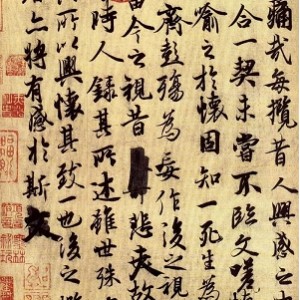 痛哉每攬昔人興感之
合一契未嘗不臨文嗟
喻之於懷固知一死生為
齊彭殤為妄作後之視
由今之視昔悲夫故
時人錄其所述雖世殊
所以興懷其致一也後之攬
亦將有感於斯文